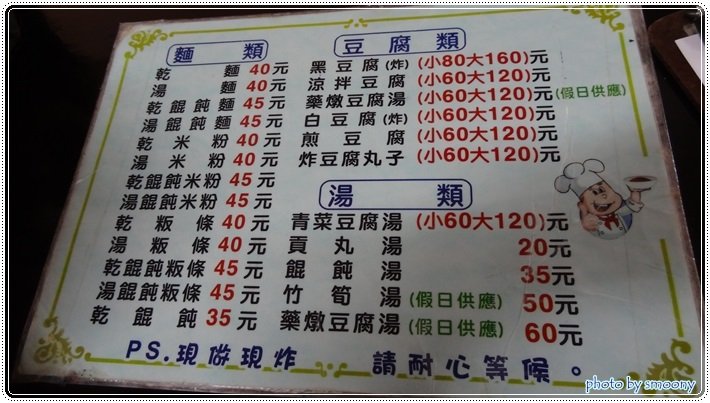 麵類
乾麵 40元
湯麵 40元
乾餛飩麵 45元
湯餛飩麵 45元
乾米粉 40元
湯米粉 40元
乾餛飩米粉 45元
湯餛飩米粉 45元
乾粄條 40元
湯粄條 40元
乾餛飩粄條 45元
湯餛飩粄條 45元
乾餛飩 35元
豆腐類
黑豆腐(炸) (小80大160)元
涼拌豆腐 (小60大120)元
藥燉豆腐湯 (小60大120)元(假日供應)
白豆腐(炸) (小60大120)元
煎豆腐 (小60大120)元
炸豆腐丸子 (小60大120)元
湯類
青菜豆腐湯 (小60大120)元
貢丸湯 20元
餛飩湯 35元
竹筍湯 (假日供應) 50元
藥燉豆腐湯 (假日供應) 60元
PS.現做現炸 請耐心等候。
photo by smoony